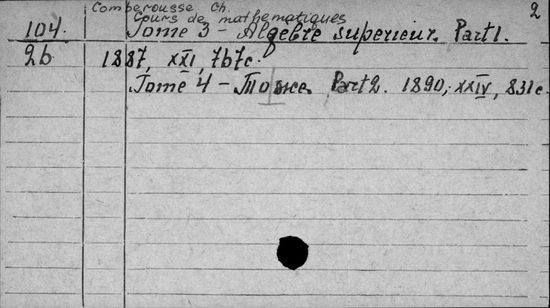 Comberousse Ch. 2
Cours de mathematiques
104. Tome 3 - Algebre superieur. Part 1.
26 1887, XXI, 767c.
Tome 4 - Тоже. Part 2. 1890, XXIV, 831c.